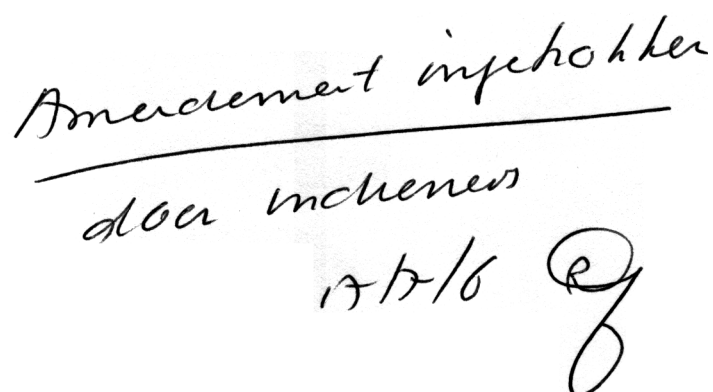 Amendement ingetrokken
door indieners